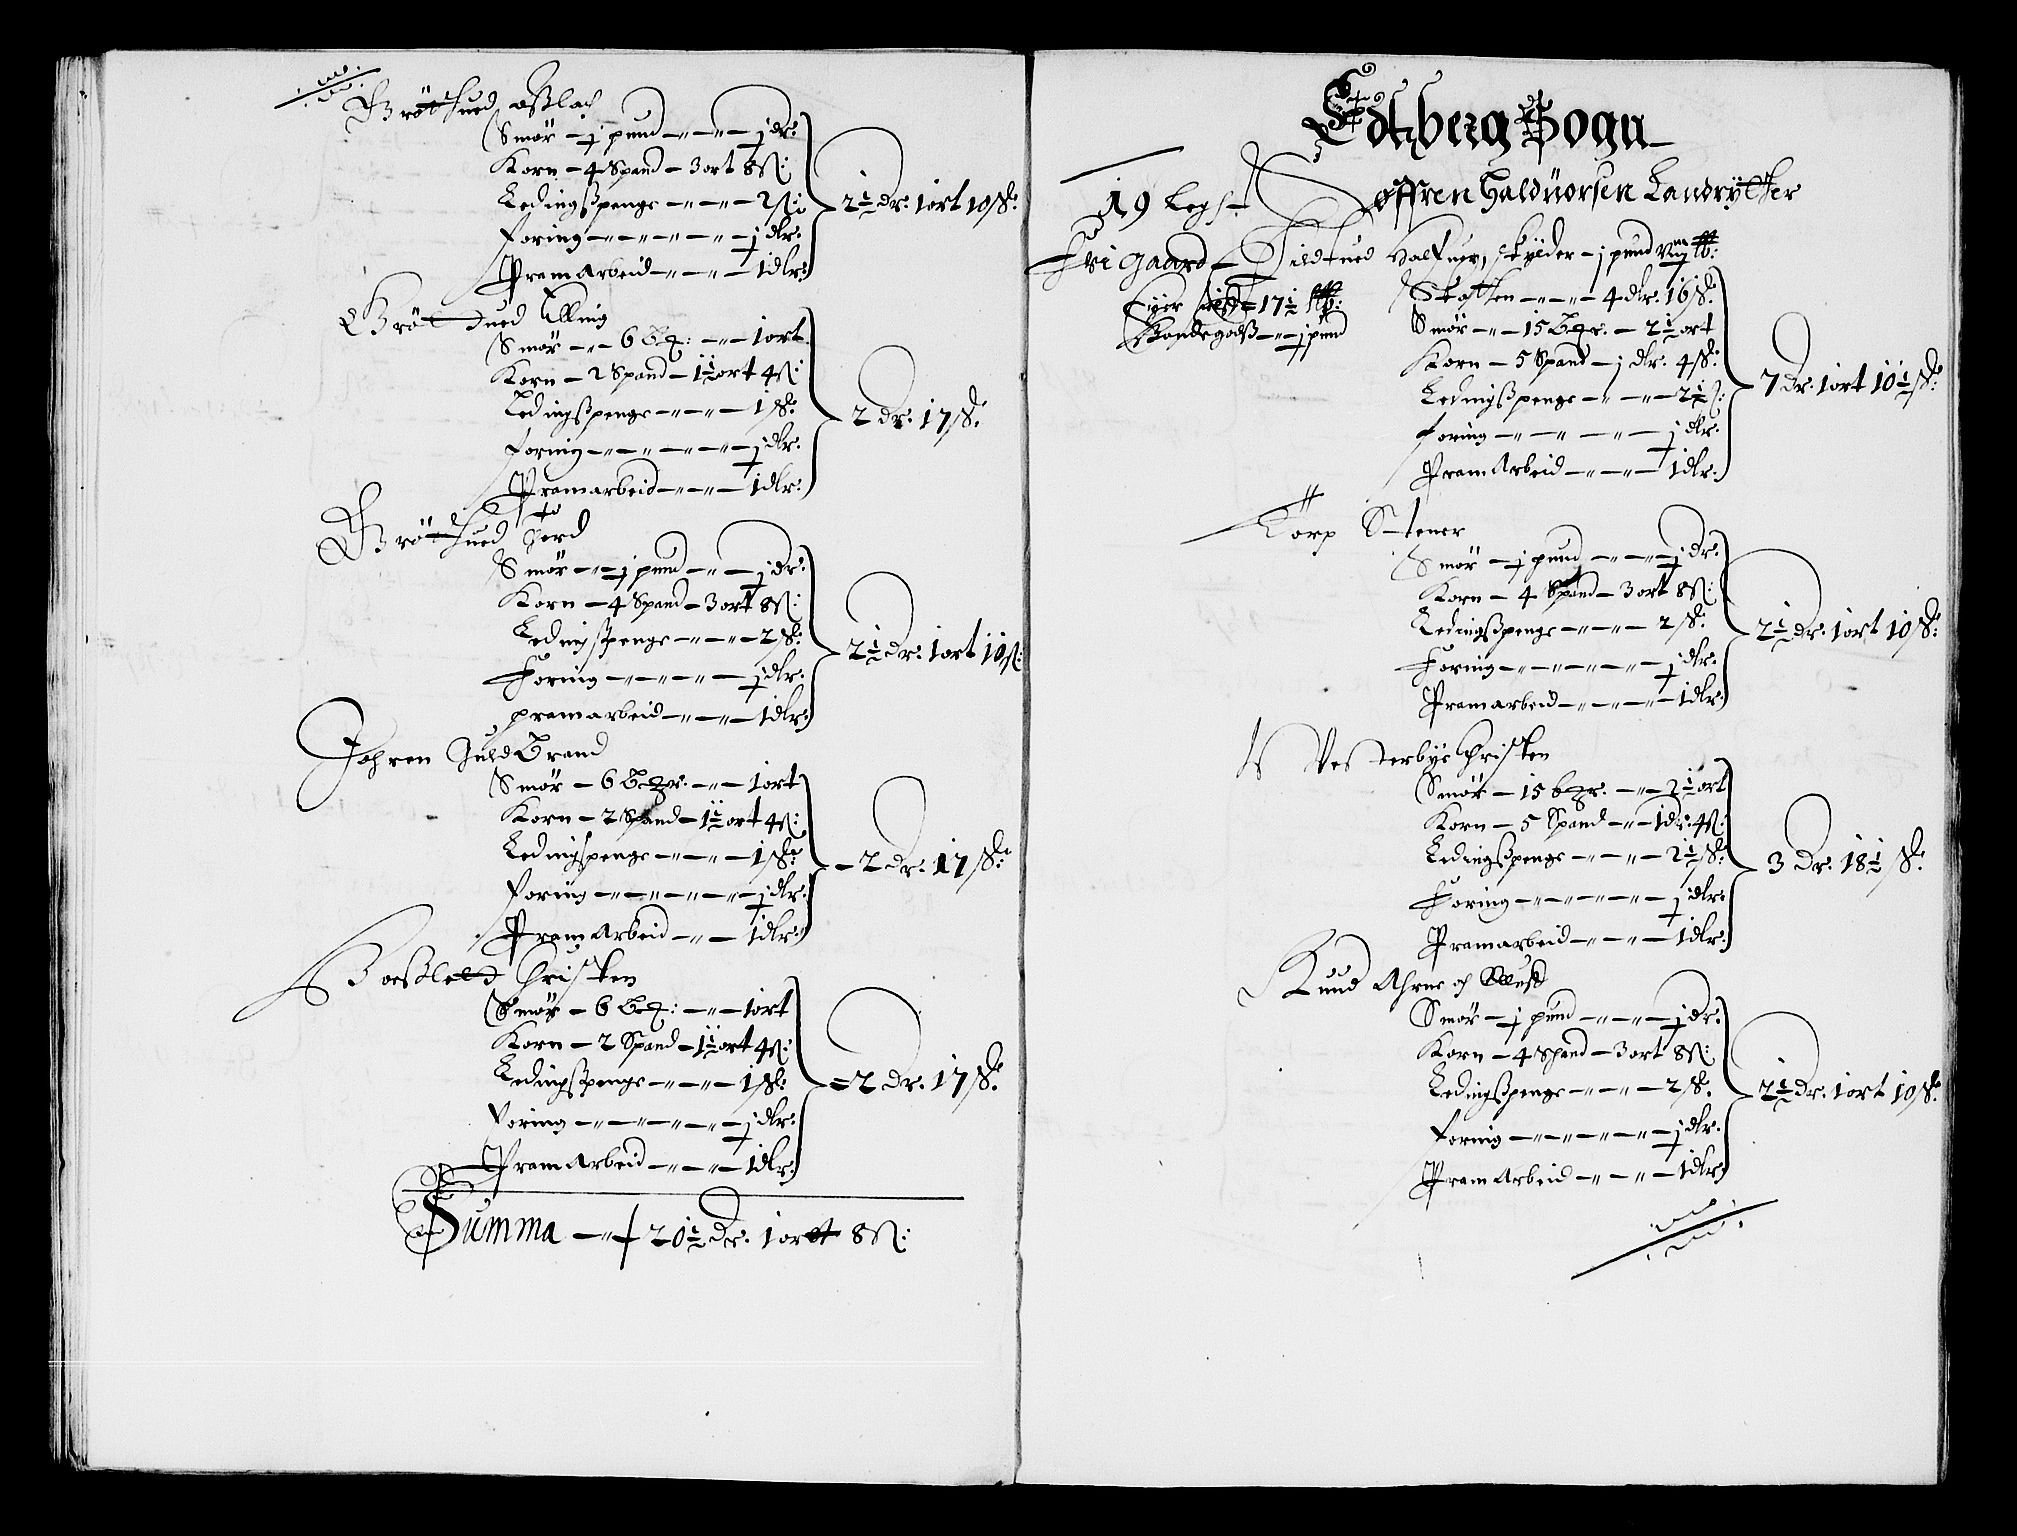 Brøttued Aßlach
Smør - ½ pund - ½ dr:
Korn - 4 Spand - 3 ort 8 ß:
Ledingßpenge - 2 ß:
foring - ½ dlr:
Pram Arbeid - 1 dlr:
2½ dr: 1 ort 10 ß:
Brøttued Elling
Smør - 6 - 1 ort
Korn - 2 Spand - 1½ ort 4 ß:
Ledingßpenge - 1 ß:
foring - ½ dlr:
Pramarbeid - 1 dlr:
2 dr: 17 ß:
Brøttued
Smør - ½ pund - ½ dr:
Korn - 4 Spand - 3 ort 8 ß:
Ledingßpenge - 2 ß:
Foring - ½ dlr:
pramarbeid - 1 dlr:
2½ dr: 1 ort 10 ß:
Johren Guldbrand
Smør - 6 - 1 ort
Korn - 2 Spand - 1½ ort 4 ß:
Ledingßpenge - 1 ß:
foring - ½ dlr:
Pram Arbeid - 1 dlr:
2 dr: 17 ß:
Christen
Smør - 6 - 1 ort
Korn - 2 Spand - 1½ ort 4 ß:
Ledingßpenge - 1 ß:
foring - ½ dlr:
Pram Arbeid - 1 dlr:
2 dr: 17 ß:
Summa - 20½ dr: 1 ortt 8 ß:
Edtzberg Sogn
19 Legh - Søffren Halduorsen Landrytter
Fri gaard - Halfuor, skylder - 1 pund
Eyer 17½
Bondegodß - ½ pund
Skatten - 4 dlr: 16 ß:
Smør - 15 - 2½ ort
Korn - 5 Spand - 1 dlr: 4 ß:
Ledingßpenge - 2½ ß:
foring - ½ dlr:
Pram Arbeid - 1 dlr:
7 dr: 1 ort 10½ ß:
Torp Stener
Smør - ½ pund - ½ dr:
Korn - 4 Spand - 3 ort 8 ß:
Ledingßpenge - 2 ß:
Foring - ½ dlr:
Pramarbeid - 1 dlr:
2½ dr: 1 ort 10 ß:
Vesterbye Christen
Smør - 15 - 2½ ort
Korn - 5 Spand - 1 dlr: 4 ß:
Ledingßpenge - 2½ ß:
Foring - ½ dlr:
Pramarbeid - 1 dlr:
3 dr: 18½ ß:
Ruud Ahrne och
Smør - ½ pund - ½ dr:
Korn - 4 Spand - 3 ort 8 ß:
Ledingßpenge - 2 ß:
foring - ½ dlr:
Pram Arbeid - 1 dlr:
2½ dr: 1 ort 10 ß: